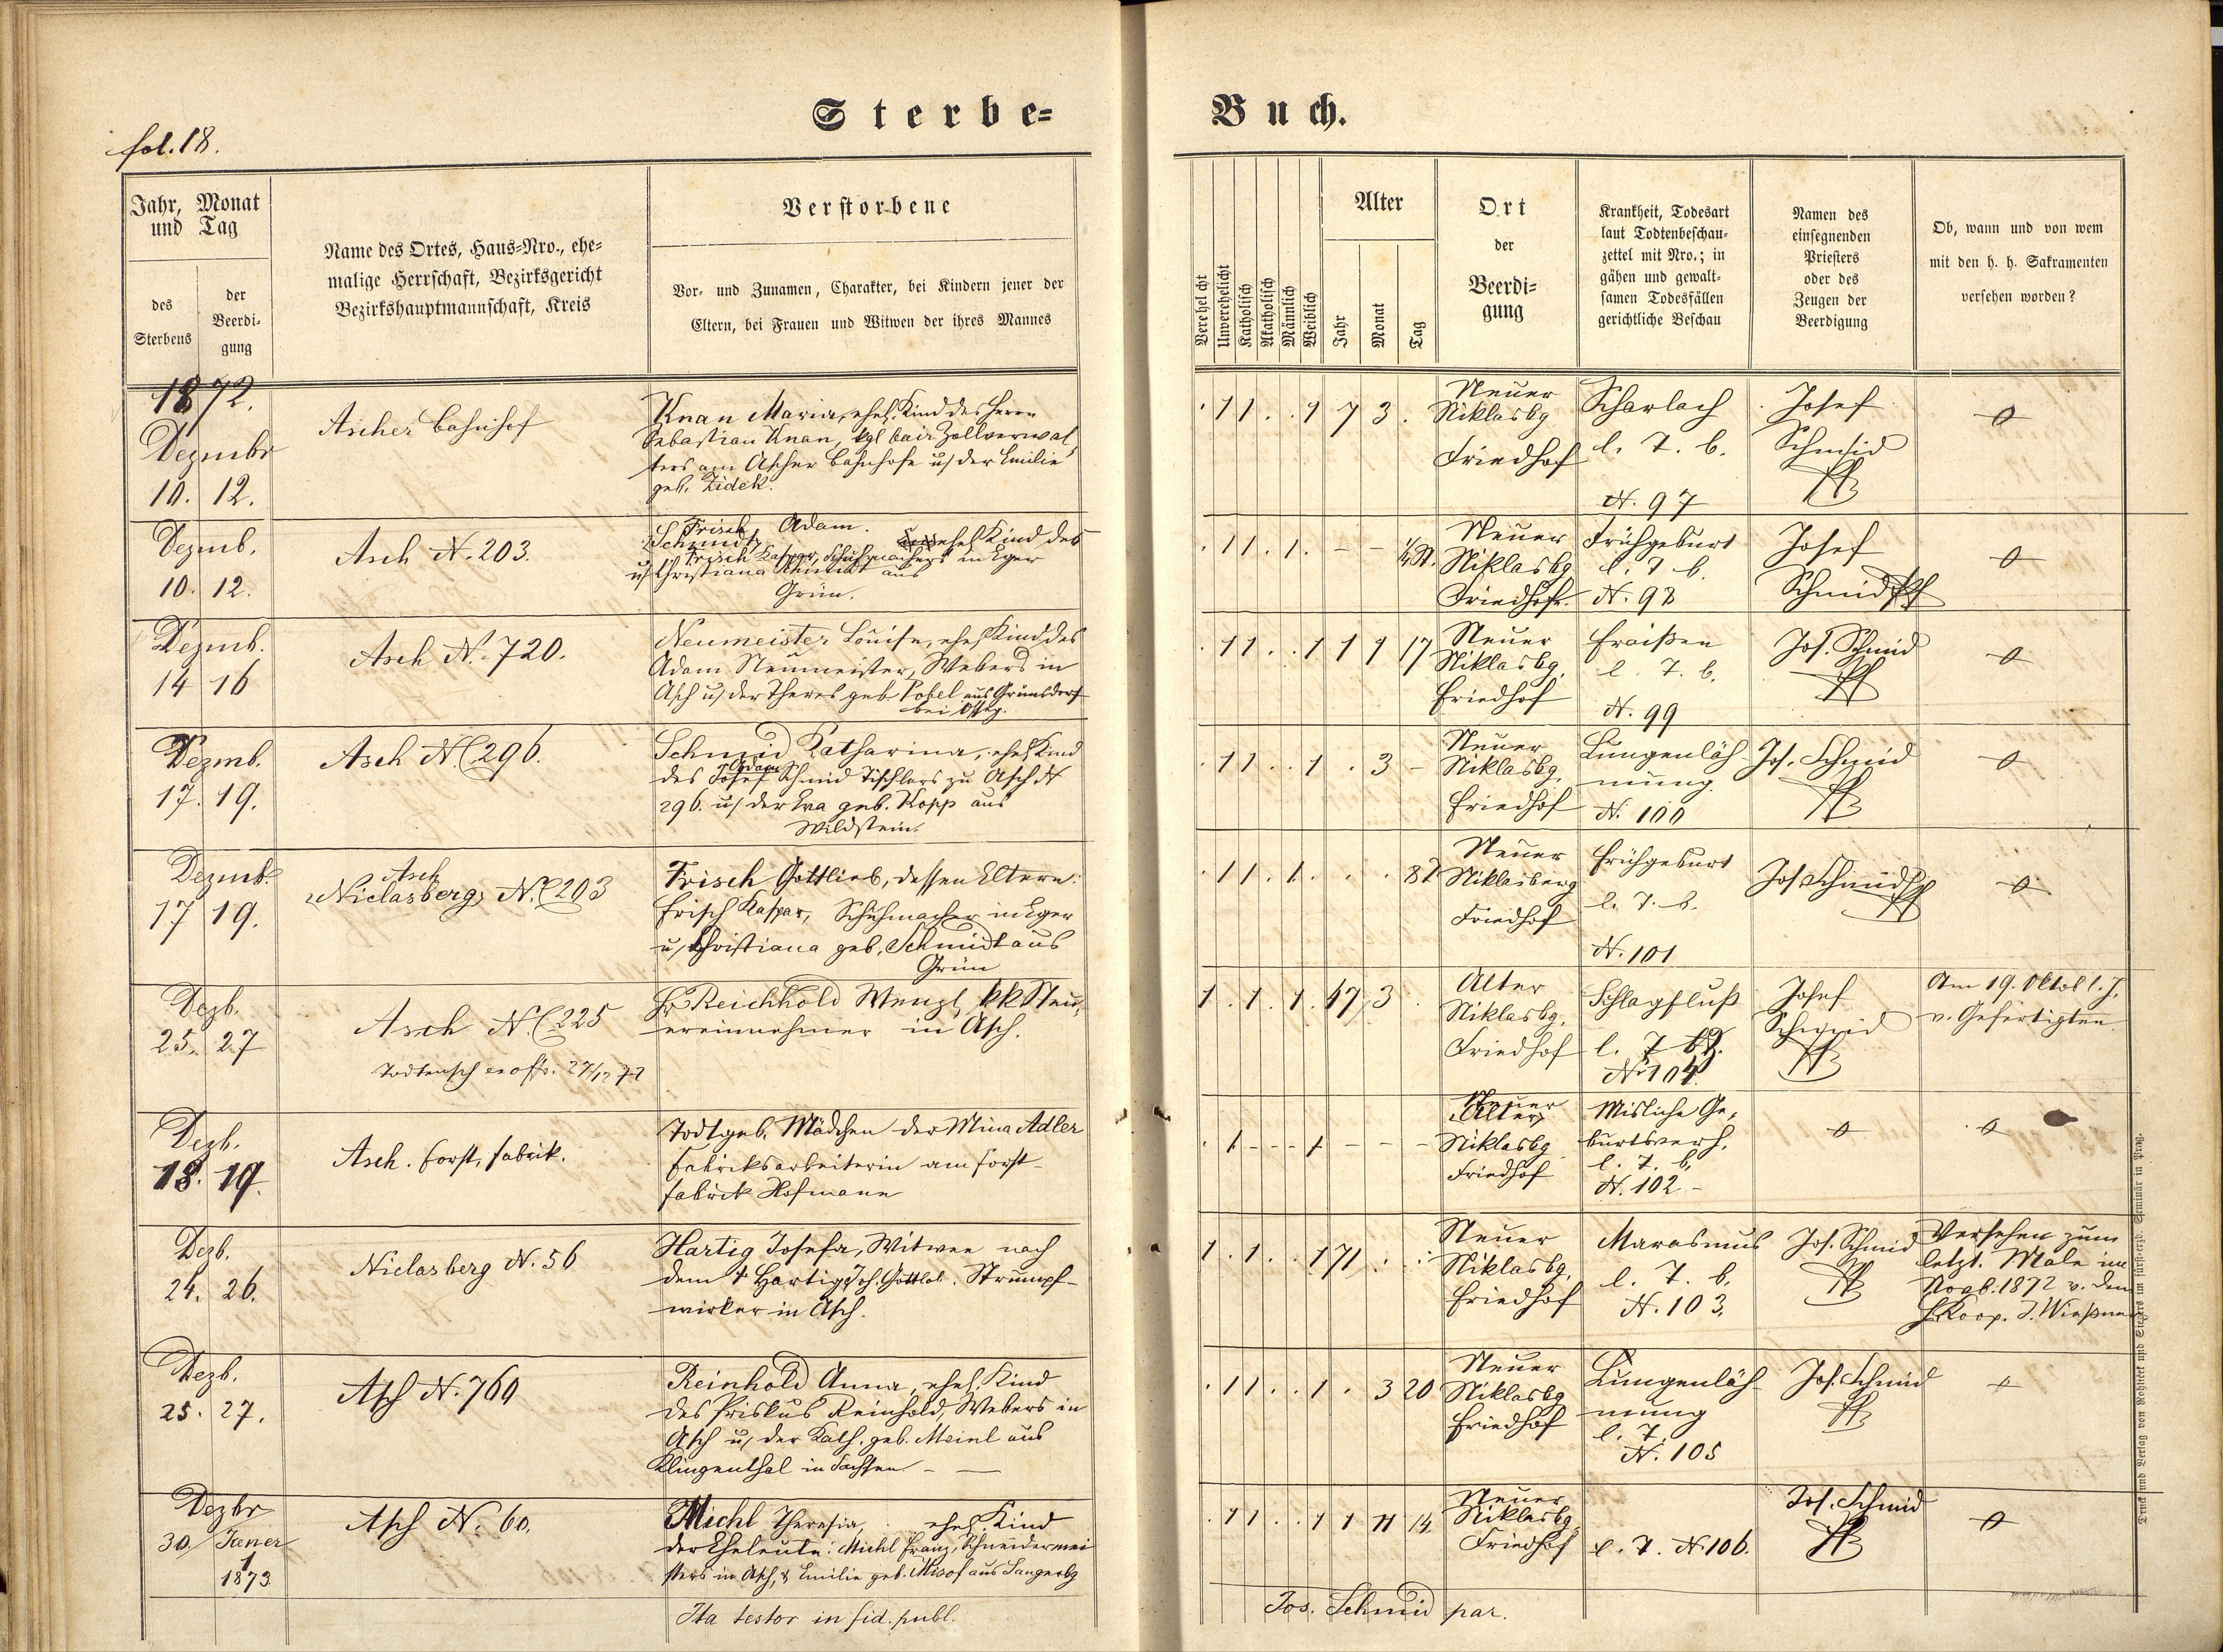 Sterbe-
Buch.
fol. 18.
Jahr, Monat
und Tag
des
Sterbens
der
Beerdi-
gung
Name des Ortes, Haus-Nro., ehe-
malige Herrschaft, Bezirksgericht
Bezirkshauptmannschaft, Kreis
Verstorbene
Vor- und Zunamen, Charakter, bei Kindern jener der
Eltern, bei Frauen und Witwen der ihres Mannes
Verehelicht
Unverehelicht
Katholisch
Akatholisch
Männlich
Weiblich
Alter
Jahr
Monat
Tag
Ort
der
Beerdi-
gung
Krankheit, Todesart
laut Todtenbeschau-
zettel mit Nro.; in
gähen und gewalt-
samen Todesfällen
gerichtliche Beschau
Namen des
einsegnenden
Priesters
oder des
Zeugen der
Beerdigung
Ob, wann und von wem
mit den h. h. Sakramenten
versehen worden?
1872.
Dezmbr
10. 12.
Ascher Bahnhof
Knan Maria, ehel. Kind des Herrn
Sebastian Knan, kgl bair Zollverwal-
ters am Ascher Bahnhofe u/ der Emilie
geb. Zidek.
. 1 1 . . 1 7 3 .
Neuer
Niklasbg
Friedhof
Scharlach
l. T. b.
N. 97
Josef
Schmid
0
Dezmb.
10. 12.
Asch N. 203.
Frisch Adam.
Schmidt ehel Kind des
Frisch Kaspar, Schuhmachers in Eger
u/ Christiana Schmidt aus
Grün.
. 1 1 . 1 . - - ½ St.
Neuer
Niklasbg
Friedhof.
Frühgeburt
l. T. b.
N. 98
Josef
Schmid
0
Dezmb.
14 16
Asch N. 720.
Neumeister Louise, ehel Kind des
Adam Neumeister, Webers in
Asch u/ der Theres geb. Pobel aus Grünsdorf
bei Osseg.
. 1 1 . . 1 1 1 17
Neuer
Niklasbg.
Friedhof
Fraißen
l. T. b.
N. 99
Jos. Schmid
0
Dezmb.
17. 19.
Asch N. 296.
Schmid Katharina, ehel Kind
Adam
des Josef Schmid Tischlers zu Asch N
296. u/ der Eva geb. Kopp aus
Wildstein.
. 1 1 . . 1 . 3 -
Neuer
Niklasbg.
Friedhof
Lungenläh-
mung.
N. 100
Jos. Schmid
0
Dezmb.
17 19.
Asch
Niclasberg N. 203
Frisch Gottlieb, dessen Eltern:
Frisch Kaspar, Schuhmacher in Eger
u/ Christiana geb. Schmidt aus
Grün
. 1 1 . 1 . . .
Neuer
Niklasberg
Friedhof
Frühgeburt
l. T. b.
N. 101
Jos Schmid
0
Dezb.
25. 27
Asch N. 225
27/12 72
Hr. Reichhold Wenzl, kk Steu-
ereinnehmer in Asch.
1 . 1 . 1 . 47 3 .
Alter
Niklasbg.
Friedhof
Schlagfluß
l. T b.
N. 104.
Josef
Schmid
Am 19. Oktob l. J.
v. Gefertigten
Dezb.
18. 19.
Asch. Forst, Fabrik.
Todtgeb. Mädchen der Mina Adler
Fabriksarbeiterin am Forst-
fabrik Hofmann
. 1 - - - 1 - - -
Neuer
Alter
Niklasbg
Friedhof
Misliche Ge-
burtsverh.
l. T. b.
N. 102 -
0
0
Dezb.
24. 26.
Niclasberg N. 56
Hartig Josefa, Witwe nach
dem † Hartig Joh. Gottlob. Strumpf-
wirker in Asch.
1 . 1 . . 1 71 . .
Neuer
Niklasbg.
Friedhof
Marasmus
l. T. b.
N. 103.
Jos. Schmid
Versehen zum
letzt. Male im
Novb. 1872 v. dem
H. Koop. J. Wießner
Dezb.
25. 27.
Asch N. 760
Reinhold Anna, ehel. Kind
des Priskus Reinhold, Webers in
Asch u/ der Kath. geb. Meinl aus
Klingenthal in Sachsen -
. 1 1 . . 1 . 3 20
Neuer
Niklasbg
Friedhof
Lungenläh-
mung
l. T.
N. 105
Jos. Schmid
Dezbr
30 / Jäner
1
1873
Asch N. 60.
Michl Theresia, ehel. Kind
der Eheleute: Michl Franz, Schneidermei
sters in Asch, & Emilie geb. aus Sangerbg
. 1 1 . . 1 1 11 14
Neuer
Niklasbg.
Friedhof
l. T. N. 106.
Jos. Schmid
0
Ita testor in fid. publ.
Jos. Schmid par.
Druck und Verlag von Rohliček und Sievers im fürst-erzb. Seminär in Prag.